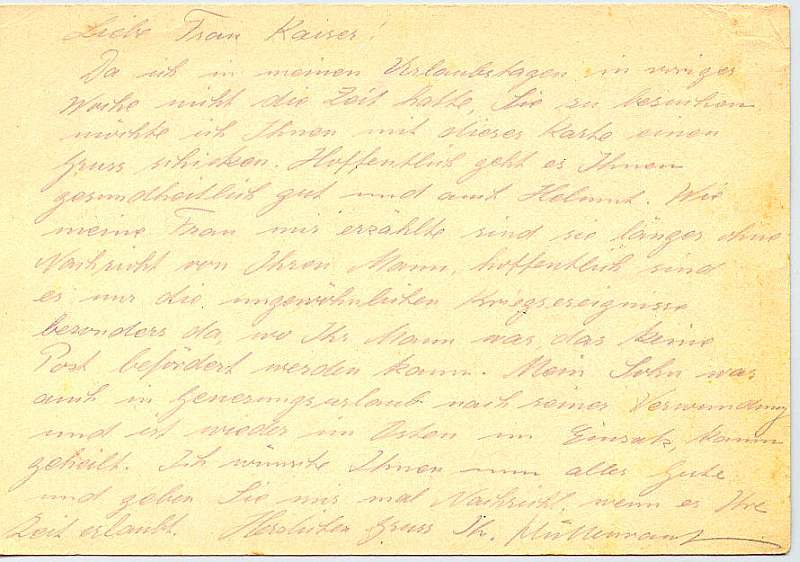 Liebe Frau Kaiser!
Da ich in meinen Urlaubstagen in voriger
Woche nicht die Zeit hatte, Sie zu besuchen
möchte ich Ihnen mit dieser Karte einen
Gruss schicken. Hoffentlich geht es Ihnen
gesundheitlich gut und auch Helmut. Wie
meine Frau mir erzählte sind sie länger ohne
Nachricht von Ihren Mann, hoffentlich sind
es nur die ungewöhnlichen Kriegsereignisse
besonders da, wo Ihr Mann war, das keine
Post befördert werden kann. Mein Sohn war
auch in Genesungsurlaub nach seiner Verwundung
und ist wieder im Osten im Einsatz, kaum
geheilt. Ich wünsche Ihnen nun alles Gute
und geben Sie mir mal Nachricht, wenn es Ihre
Zeit erlaubt. Herzlichen Gruss Th.